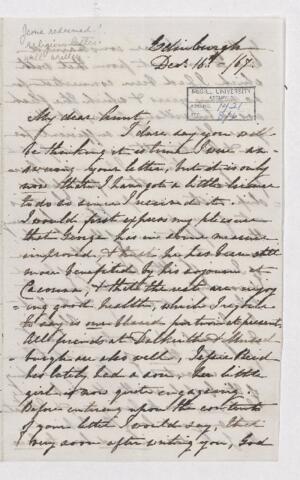 [some redeemed!
religious letter.
well written
Edinburgh
Decr. 16th - /67.
McGILL UNIVERSITY
ACC. NO.
REF.
My dear Aunt,
I dare say you will
be thinking it is time I was an-
swering your letter, but it is only
now that I have got a little leisure
to do so since I received it.
I would first express my pleasure
that George has in some measure
improved, & that he has been still
more benefited by his sojourn at
Cacouna, & that the rest are enjoy
-ing good health, which I regret
to say is our blessed portion at present.
All friends at Dalkeith &
burgh are also well. Jessie Reed
has lately had a son. Her little
girl is now quite engaging.
Before entering upon the contents
of your letter I would say, that
very soon after writing you, God